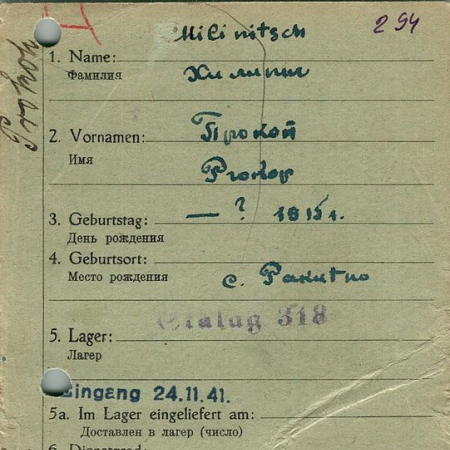 294
Milinitsch
1. Name:
Фамилия
Prokop
2. Vornamen:
Прокоп
Имя
Prokop
3. Geburtstag: — ? 1915 г.
День рождения
4. Geburtsort:
Место рождения
с. Ракитно
Stalag 318
5. Lager:
Лагер
Eingang 24.11.41.
5a. Im Lager eingeliefert am:
Доставлен в лагер (число)